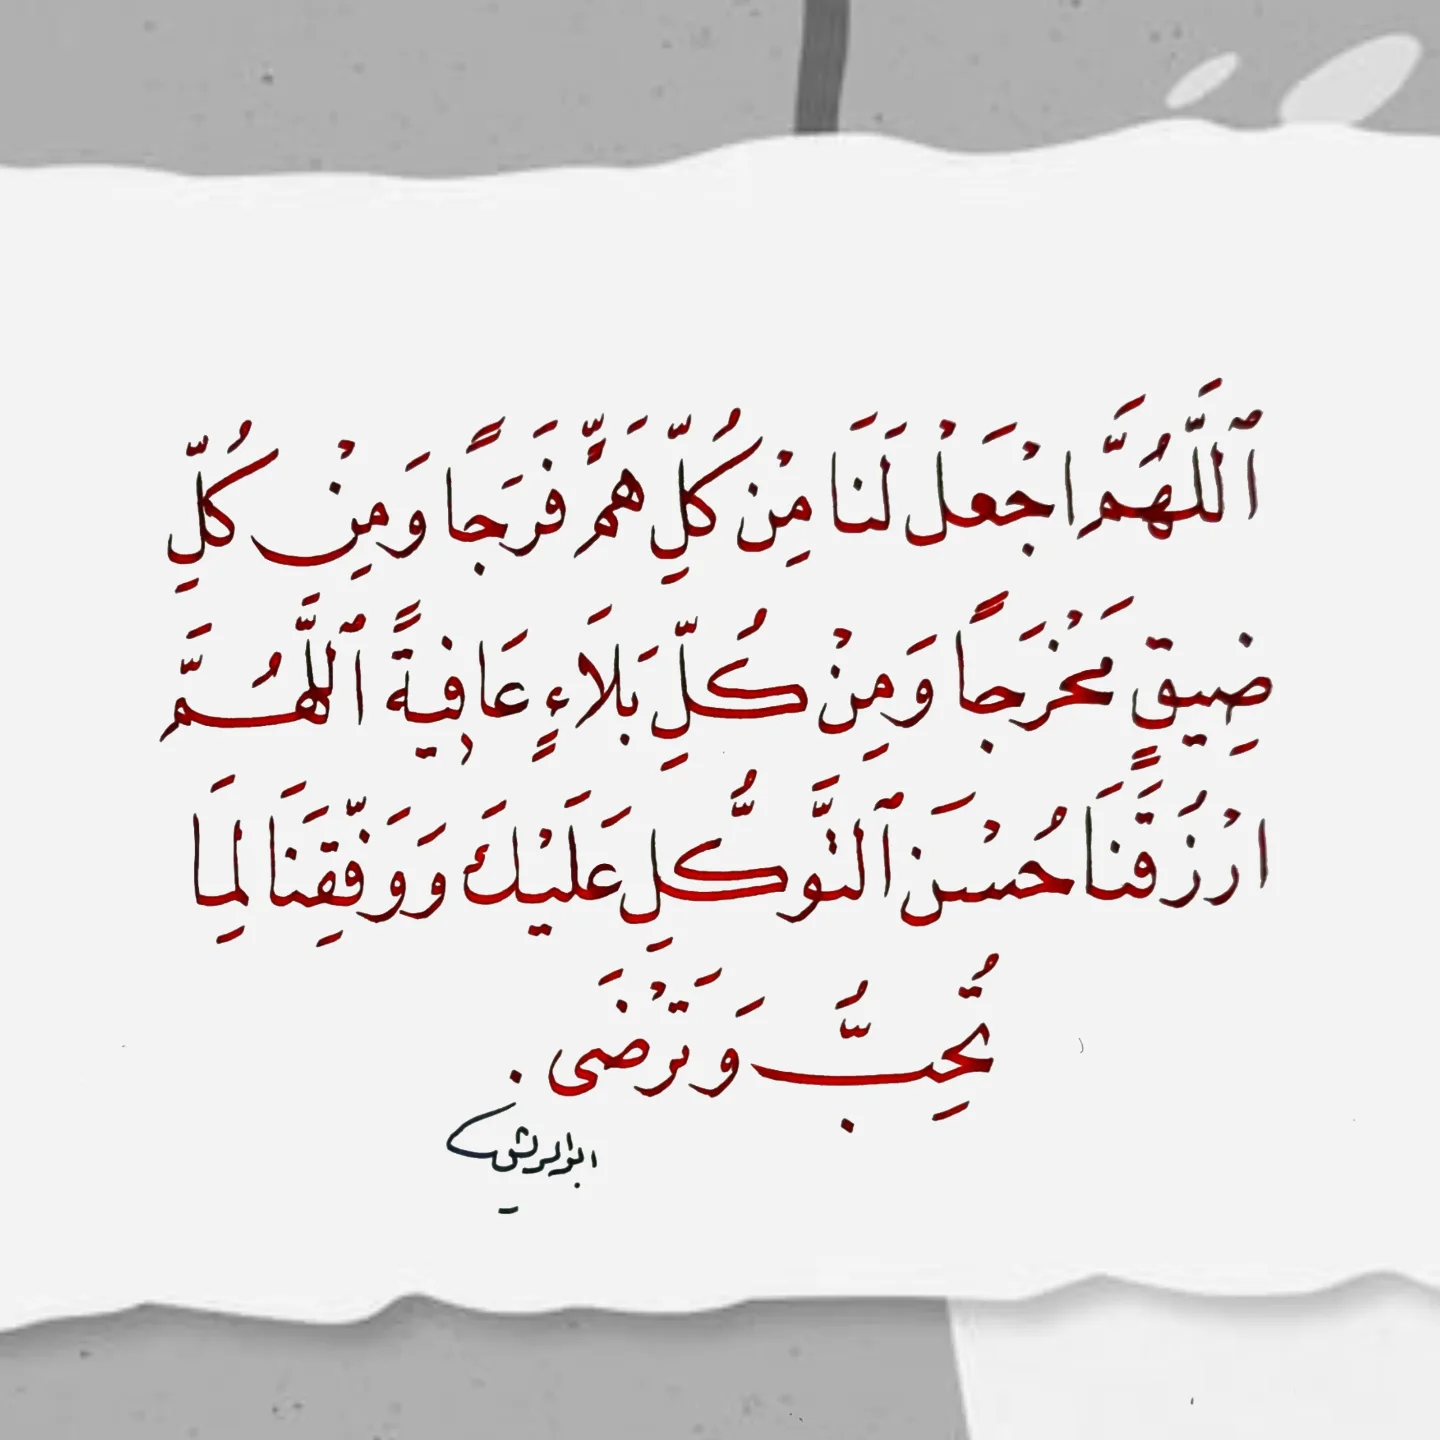 ٱللَّهُمَّ اجْعَلْ لَنَا مِنْ كُلِّ هَمٍّ فَرَجًا وَمِنْ كُلِّ
ضِيقٍ مَخْرَجًا وَمِنْ كُلِّ بَلَاءٍ عَافِيَةً ٱللَّهُمَّ
ارْزُقْنَا حُسْنَ ٱلتَّوَكُّلِ عَلَيْكَ وَوَفِّقْنَا لِمَا
تُحِبُّ وَتَرْضَى .